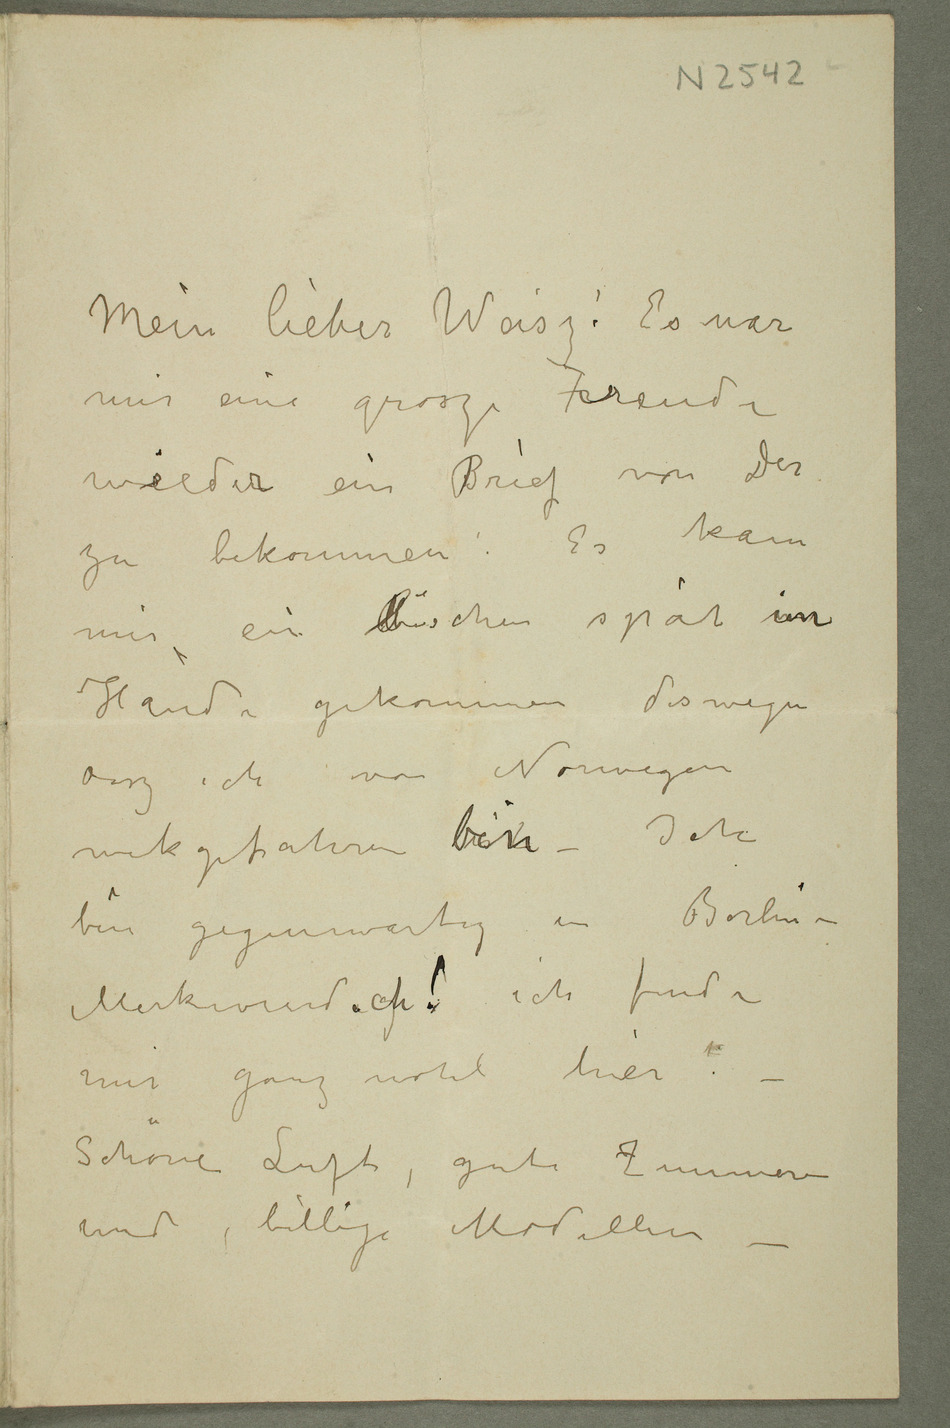 N 2542
Mein lieber Waisz! Es war
mir eine grosze Freude
wieder ein Brief von Der
zu bekommen! Es kam
mir ein bischen spät in
Hände gekommen deswegen
dasz ich von Norwegen
wekgefahren bin – Ich
bin gegenwärtig in Berlin –
Merkwurdich! ich finde
mir ganz wohl hier! –
Schöne Luft, gute Zimmern
und, billige Modellen –